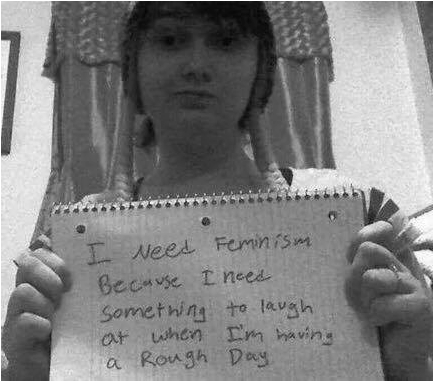 I Need Feminism
Because I need
something to laugh
at when I'm having
a Rough Day